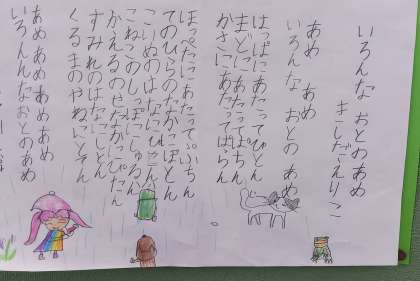 いろんな おとのあめ
きしだえりこ
あめ あめ
いろんな おとの あめ
はっぱにあたってぴとん
まどにあたってぱちん
かさにあたってぱらん
ほっぺたにあたってぷちん
てのひらのなかにぽとん
こいぬのはなにぴこん
こねこのしっぽにしゅるん
かえるのせなかにぴたん
すみれのはなにしとん
くるまのやねにとてん
あめ あめ あめ あめ
いろんなおとのあめ